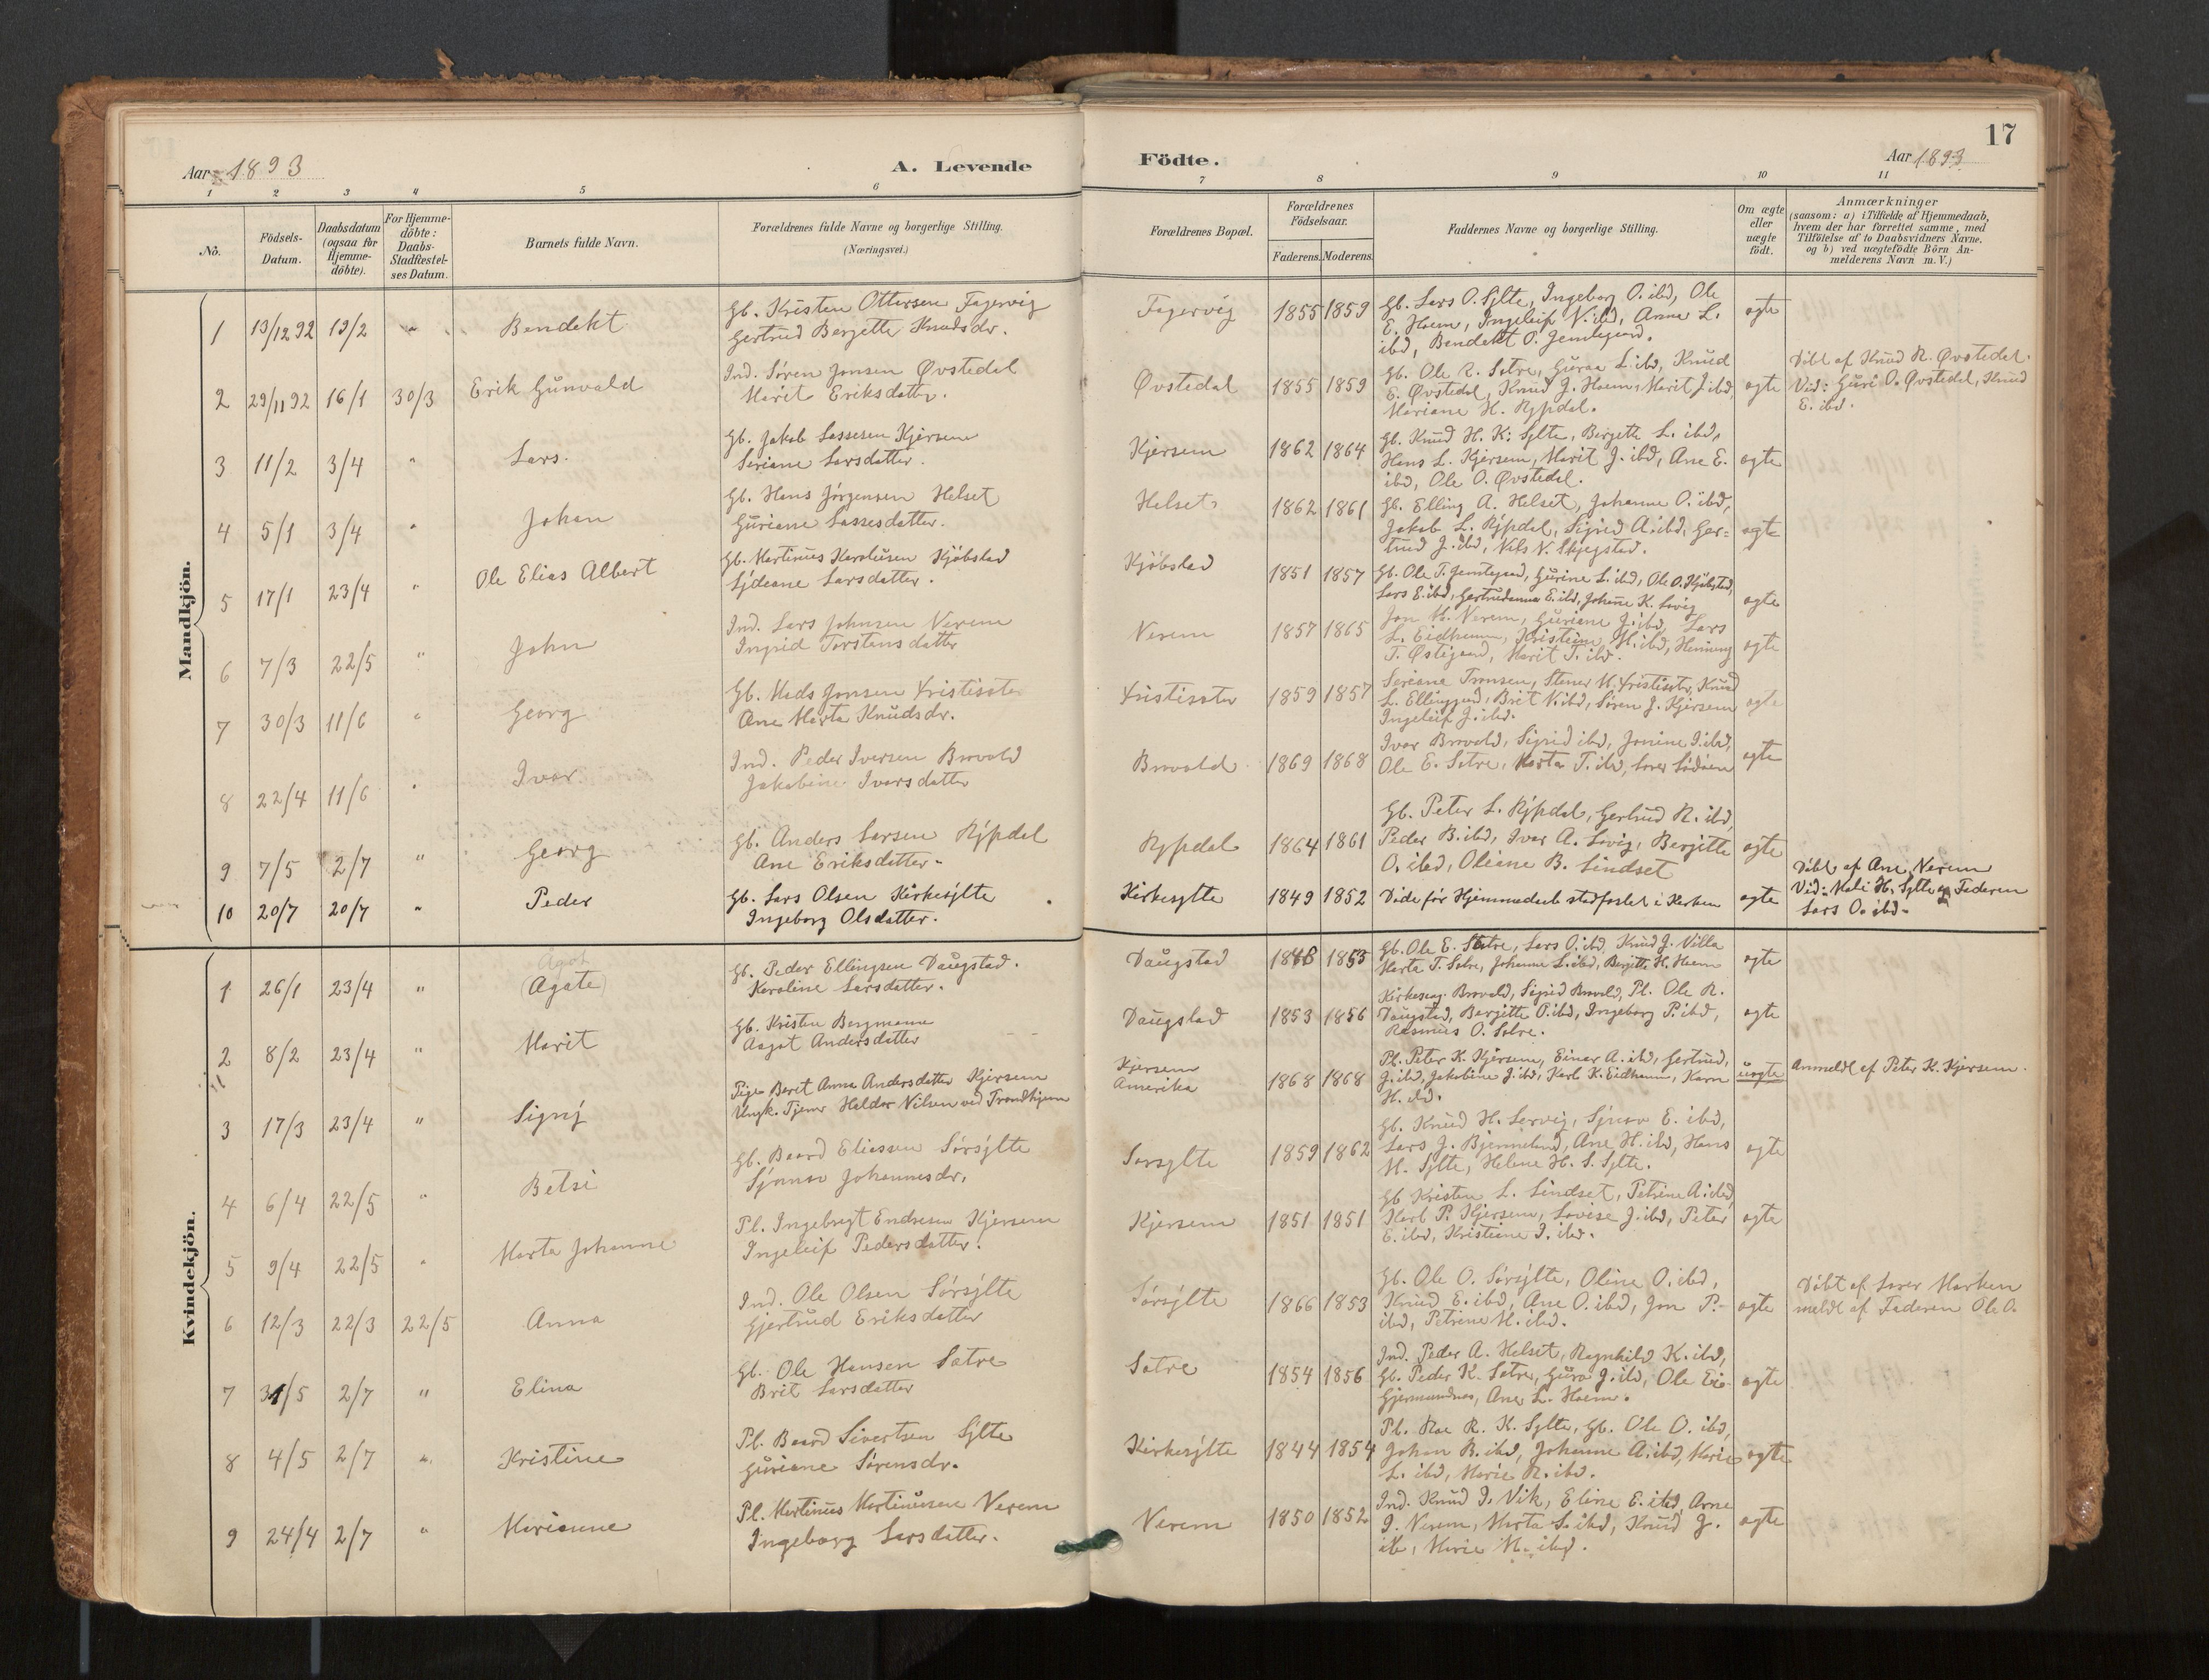 17
Aar 1893
A. Levende
Födte.
Aar 1893
1 2 3 4 5 6 7 8 9 10 11
No.
Födsels-
Datum.
Daabsdatum
(ogsaa for
Hjemme-
döbte).
For Hjemme-
döbte:
Daabs-
Stadfæstel-
ses Datum.
Barnets fulde Navn.
Forældrenes fulde Navne og borgerlige Stilling.
(Næringsvei.)
Forældrenes Bopæl.
Forældrenes
Födselsaar.
Faderens. Moderens.
Faddernes Navne og borgerlige Stilling.
Om ægte
eller
uægte
födt.
Anmærkninger
(saasom: a) i Tilfælde af Hjemmedaab,
hvem der har forrettet samme, med
Tilföielse af to Daabsvidners Navne.
og b) ved uægtefödte Börn An-
melderens Navn m.V.)
Mandkjön.
1 13/12 92 19/2 " Bendekt
Gb. Kristen Ottersen Fagervig
Gertrud Bergette Knudsdr.
Fagervig 1855 1859
Gb. Lars O. Sylte, Ingeborg O. ibd, Ole
E. Hoem, Ingeleif N. ibd, Anna L.
ibd, Bendekt O. Jemtegaard.
ægte
2 29/11 92 16/1 30/3 Erik Gunvald
Ind. Søren Jonsen Øvstedal
Marit Eriksdatter.
Øvstedal 1855 1859
Gb. Ole R. Sætre, Guraa L. ibd, Knud
E. Øvstedal, Knud J. Hoem, Marit J. ibd,
Mariane H. Rypdal.
ægte
Döbt af Knud R. Øvstedal.
Vid: Guri O. Øvstedal, Knud
E. ibd.
3 11/2 3/4 " Lars.
Gb. Jakob Lassesen Kjersem
Seriane Larsdatter.
Kjersem 1862 1864
Gb. Knud H. K: Sylte, Bergette L. ibd,
Hans L. Kjersem, Marit J. ibd, Ane E.
ibd, Ole O. Øvstedal.
ægte
4 5/1 3/4 " Johan
Gb. Hans Jørgensen Helset
Guriane Lassesdatter.
Helset 1862 1861
Gb. Elling A. Helset, Johanne O. ibd,
Jakob L. Rypdal, Sigrid A. ibd, Ger=
trud J. ibd, Nils N. Skjegstad.
ægte
5 17/1 23/4 " Ole Elias Albert
Gb. Martinus Karolusen Kjøbstad
Sjdeane Larsdatter.
Kjøbstad 1851 1857
Gb. Ole T. Jemtegaard, Gurine L. ibd, Ole O. Kjøbstad,
Lars E. ibd, Gertrudanna E. ibd, Johane K. Løvig
ægte
6 7/3 22/5 " John
Ind. Lars Johnsen Nerem
Ingrid Torstensdatter
Nerem 1857 1865
Jon H. Nerem, Guriane J. ibd, Lars
L. Eidhamm, Kristine H. ibd, Henning
T. Østigaard, Marit T. ibd.
ægte
7 30/3 11/6 " Georg
Gb. Mads Jonsen Fristisæter
Ane Marta Knudsdr.
Fristisæter 1859 1857
Seriane Tronsen, Stener M. Fristisæter, Knud
L. Ellinggaard, Brit N. ibd, Søren J. Kjersem
Ingeleif J. ibd.
ægte
8 22/4 11/6 " Ivar
Ind. Peder Iversen Brovold
Jakobine Ivarsdatter
Brovold 1869 1868
Ivar Brovold, Sigrid ibd, Jonine I. ibd,
Ole E. Sætre, Marta T. ibd,
ægte
9 7/5 2/7 " Georg
Gb. Anders Larsen Rypdal
Ane Eriksdatter.
Rypdal 1864 1861
Gb. Peter L. Rypdal, Gertrud R. ibd,
Peder B. ibd, Ivar A. Løvig, Bergitte
O. ibd, Oliane B. Lindset
ægte
10 20/7 20/7 " Peder
Gb. Lars Olsen Kirkesylte
Ingeborg Olsdatter.
Kirkesylte 1849 1852
Døde før Hjemmedaab stadfæstet i Kirken
ægte
Döbt af Ane Nerem
Vid: Mali H. Sylte og Faderen
Lars O. ibd.
Kvindekjön.
Agot
1 26/1 23/4 " (Agate)
Gb. Peder Ellingsen Daugstad.
Karoline Larsdatter.
Daugstad 1848 1853
Gb. Ole E. Sætre, Lars O. ibd, Knud J. Villa
Marta T. Sætre, Johanne L. ibd, Bergitte H. Hoem
ægte
2 8/2 23/4 " Marit
Gb. Kristen Bergmann
Aagot Andersdatter
Daugstad 1853 1856
Kirkesang. Brovold, Sigrid Brovold, Pl. Ole R.
Daugstad, Bergitte O. ibd, Ingeborg P. ibd,
Rasmus O. Sætre.
ægte
3 17/3 23/4 " Signy
Pige Berit Anna Andersdatter Kjersem
Ungk. Tjener Halder Nilsen ved Trondhjem
Kjersem
Amerika 1868 1868
Pl. Peter K. Kjersem, Einar A. ibd, Gertrud,
J. ibd, Jakobine J. ibd, Karl K. Eidhamm, Karn
H. ibd.
uægte
Anmeldt af Peter K. Kjersem.
4 6/4 22/5 " Betsi
Gb. Baard Eliassen Sørsylte
Synnøv Johannesdr.
Sørsylte 1859 1862
Gb. Knud H. Lervig, Synøv E. ibd,
Lars J. Bjermeland, Ane H. ibd, Hans
M. Sylte, Helene H. S. Sylte.
ægte
5 9/4 22/5 " Marta Johanne
Pl. Ingebrigt Endresen Kjersem
Ingeleif Pedersdatter.
Kjersem 1851 1851
Gb Kristen L. Lindset, Petrine A. ibd,
Karl P. Kjersem, Lovise J. ibd, Peter
E. ibd, Kristiane I. ibd.
ægte
6 12/3 22/3 22/5 Anna
Ind. Ole Olsen Sørsylte
Gjertrud Eriksdatter
Sørsylte 1866 1853
Gb. Ole O. Sørsylte, Oline O. ibd,
Knud E. ibd, Ane O. ibd, Jon P.-
ibd, Petrine H. ibd.
ægte
Döbt af Lærer Harken
meldt af Faderen Ole O.
7 31/5 2/7 " Elina
Gb. Ole Hansen Sætre
Brit Larsdatter
Sætre 1854 1856
Ind. Peder A. Helset, Ragnhild K. ibd,
Gb. Peder K. Sætre, Gura J. ibd, Ole
Gjermundnes, Ane L. Hoem.
ægte
8 4/5 2/7 " Kristine
Pl. Baard Sivertsen Sylte
Guriane Sørensdr.
Kirkesylte 1844 1854
Pl. Roe R. K. Sylte, Gb. Ole O. ibd,
Johan B. ibd, Johanne A. ibd, Marie
L. ibd, Marie R. ibd.
ægte
9 24/4 2/7 " Marianne
Pl. Martinus Martinusen Nerem
Ingeborg Larsdatter.
Nerem 1850 1852
Ind. Knud I. Vik, Eline E. ibd, Arne
I. Nerem, Marta L. ibd, Knud J.
ib, Marie M. ibd.
ægte